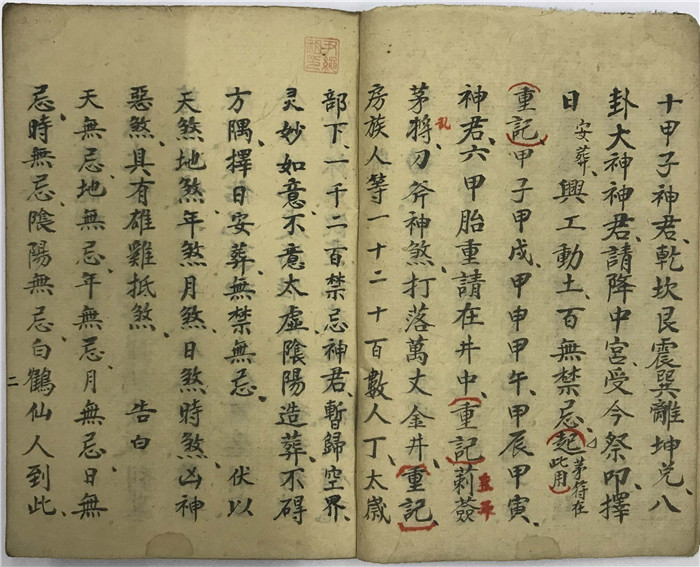 十甲子神君、乾坎艮震巽離坤兌、八
卦大神神君、請降中宮、受今祭叩、擇
日安葬、興工動土、百無禁忌、起茅符在此用
重記、甲子甲戌、甲申甲午、甲辰甲寅、
神君、六甲胎重請在井中、重記、莿簽
茅將、刀斧神煞、打落萬丈金井、重記、
房族人等一十二十百數人丁、太歲
部下、一千二百禁忌神君、暫歸空界、
灵妙如意、不意太虛、陰陽造葬、不碍
方隅、擇日安葬、無禁無忌、伏以
天煞地煞、年煞月煞、日煞時煞、凶神
惡煞、具有雄雞抵煞、告白
天無忌、地無忌、年無忌、月無忌、日無
忌、時無忌、陰陽無忌、白鶴仙人到此、
二